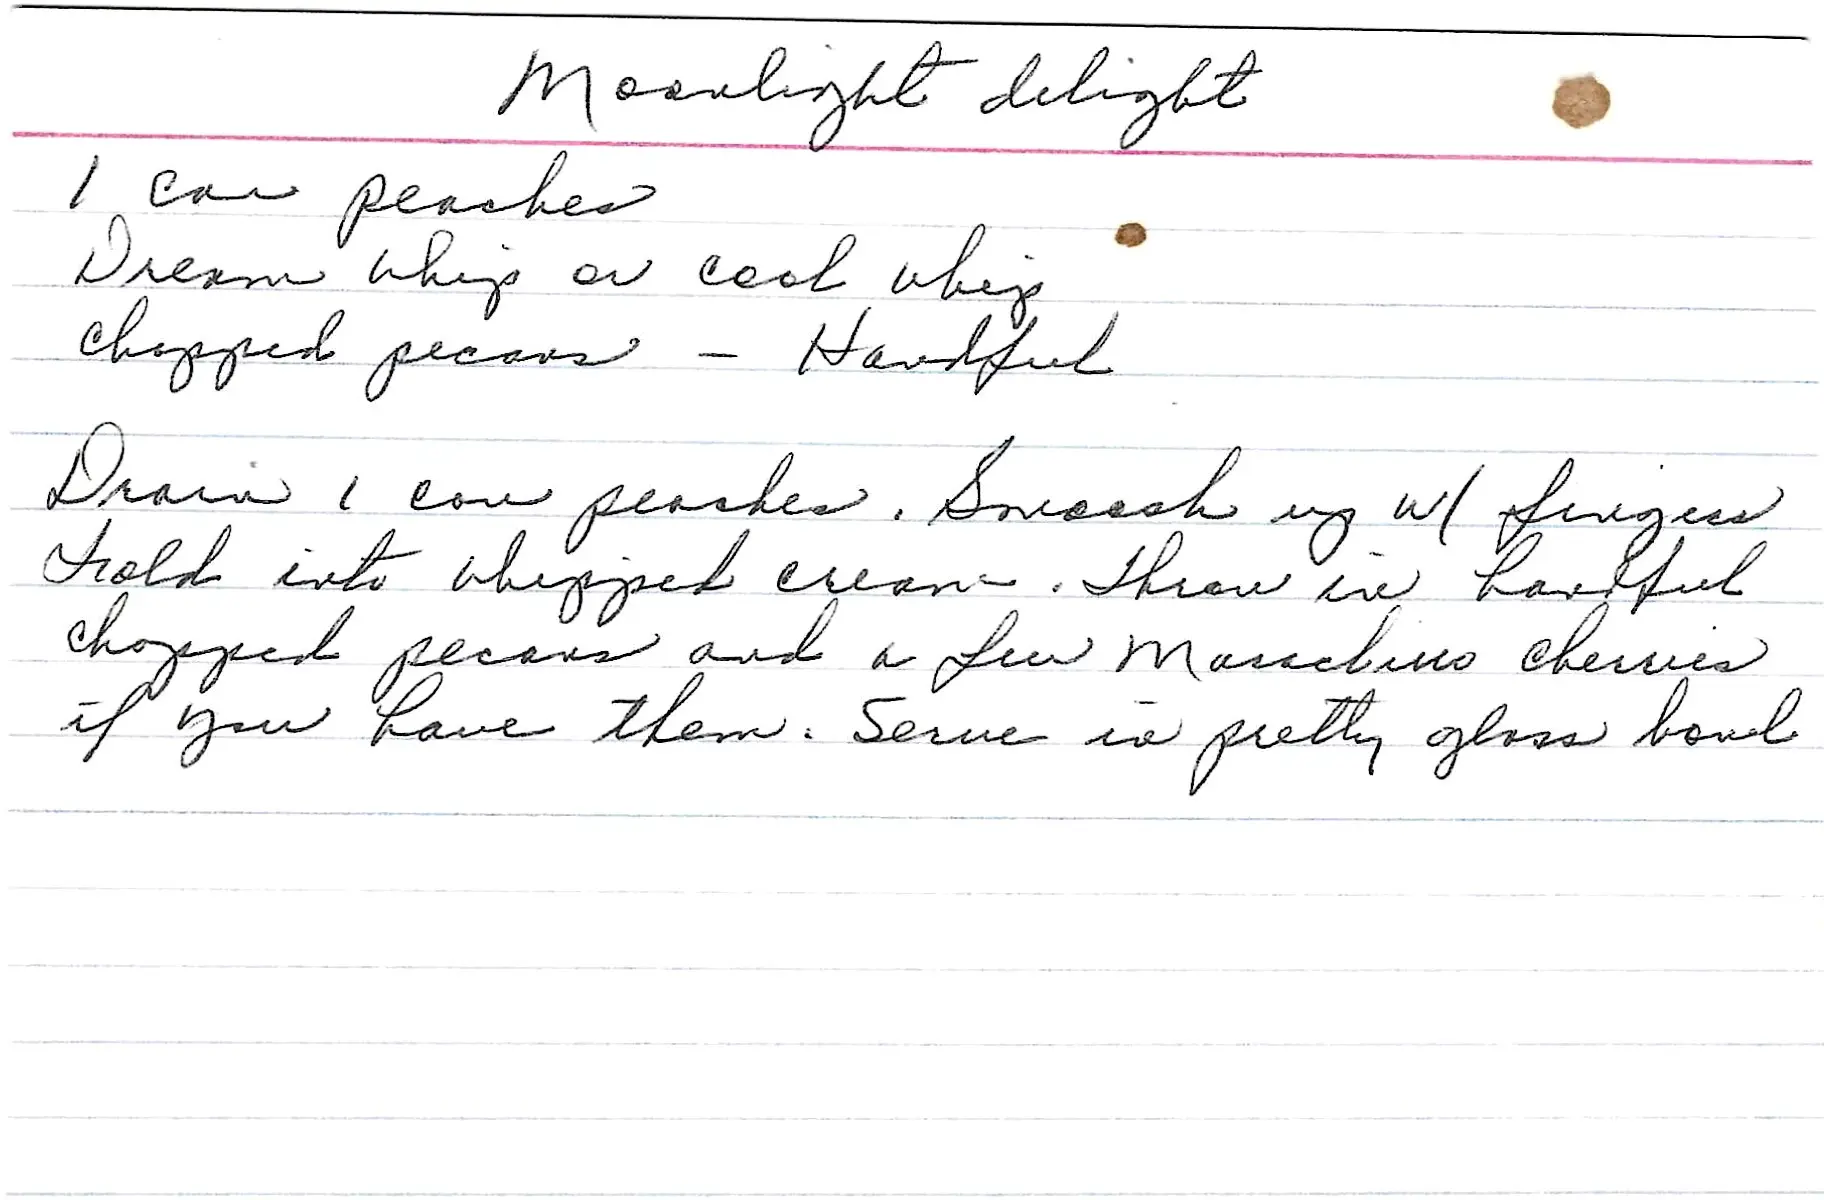 Moonlight delight
1 can peaches
Dream whip or cool whip
chopped pecans - Handful
Drain 1 can peaches. Smoosh up w/ fingers
Fold into whipped cream. Throw in handful
chopped pecans and a few Maraschino cherries
if you have them. Serve in pretty glass bowl